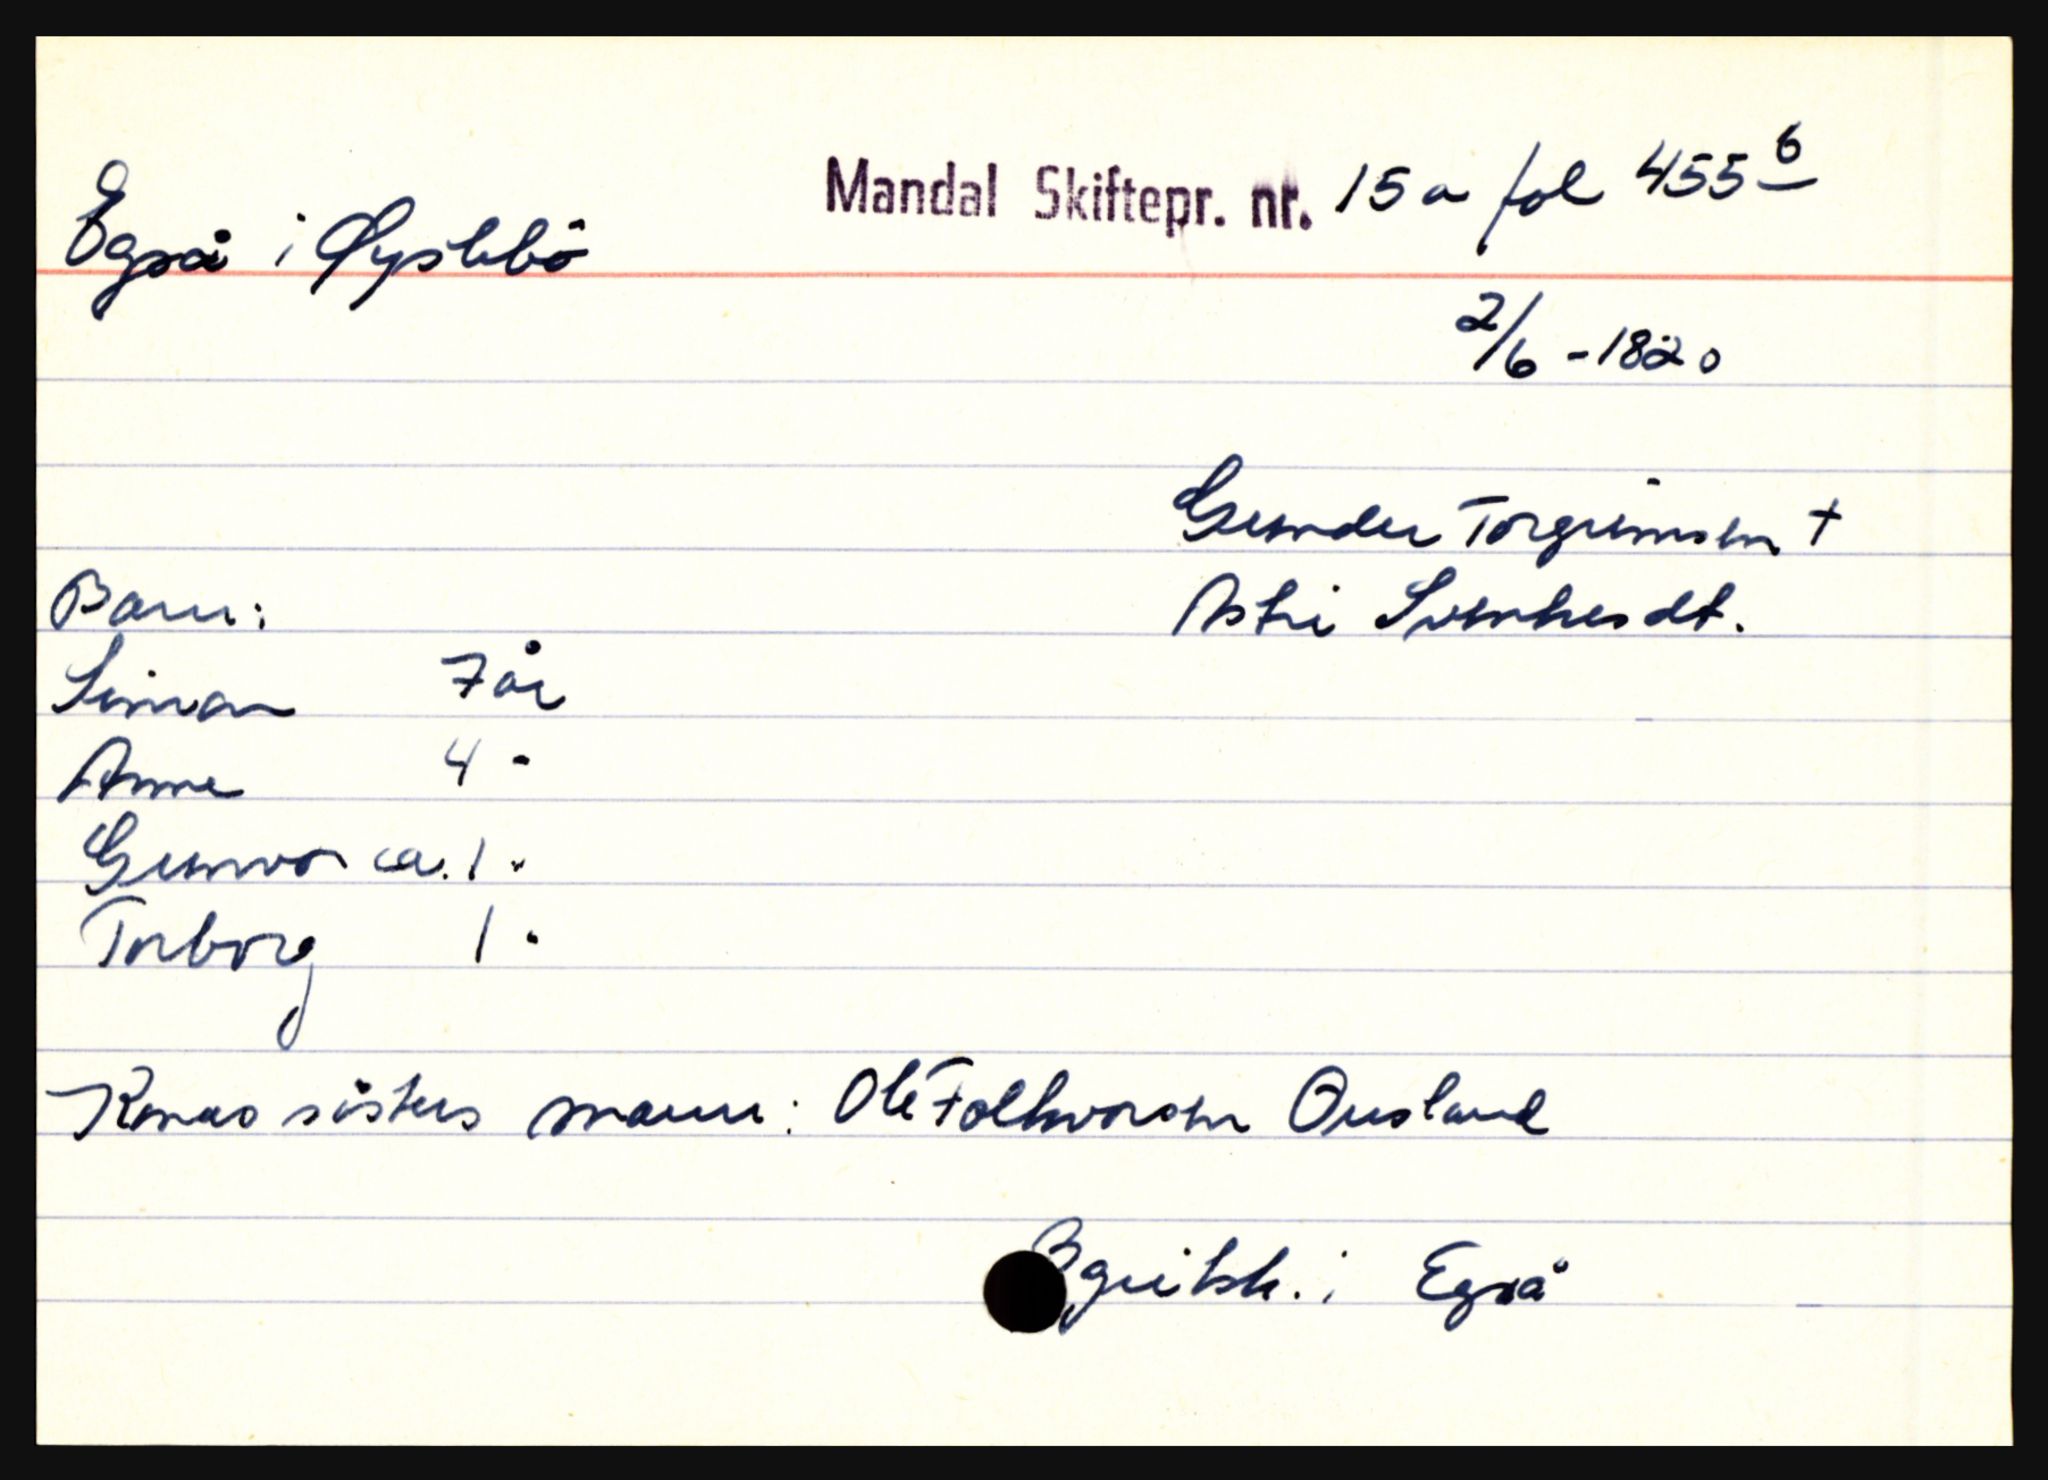 Egså i Øyslebö
Mandal Skiftepr. nr. 15 a fol 455 b
2/6 - 1820
Gunder Torgrimsen †
Astri Svenkesdt.
Barn:
Simon 7 år
Anne 4 "
Gunvor ca. 1 "
Torborg 1 "
Konas søsters mann: Ole Folkvorsen Ousland
Bguitsk. i Egså